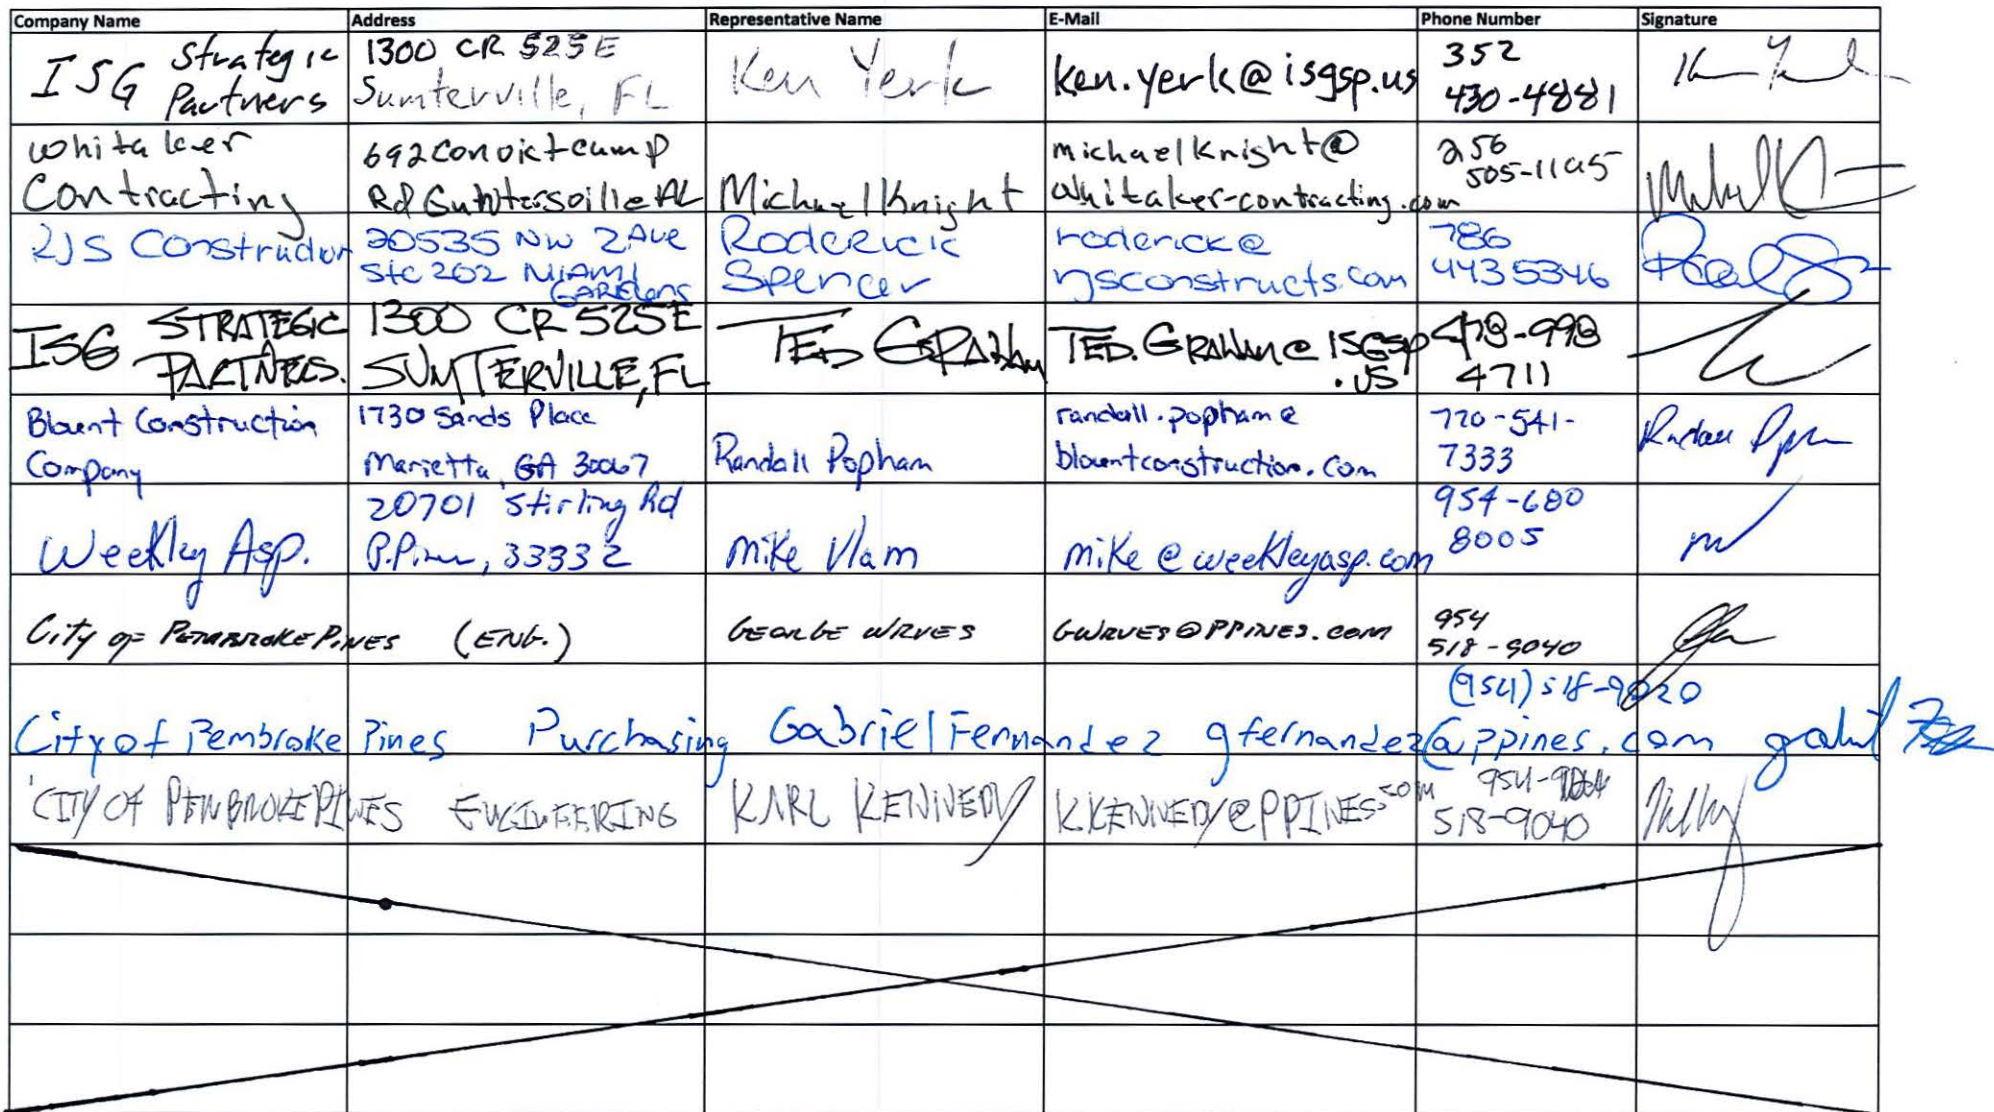 Company Name Address Representative Name E-Mail Phone Number Signature
ISG Strategic Partners
1300 CR 525E
Sumterville, FL
Ken Yerk
Ken.yerk@isgsp.us
352
430-4881
Whitaker
Contracting
692 Convict camp
Rd Guntersville AL
Michael Knight
michaelknight@
whitaker-contracting.com
256
505-1195
RJS Construction
20535 NW 2 Ave
Ste 202 Miami
Gardens
Roderick
Spencer
roderick@
rjsconstructs.com
786
4435346
ISG STRATEGIC
PARTNERS.
1300 CR 525E
SUMTERVILLE, FL
TED GRAHAM
TED.GRAHAM@ISGSP
.US
478-998
4711
Blount Construction
Company
1730 Sands Place
Marietta, GA 30067
Randall Popham
randall.popham@
blountconstruction.com
770-541-
7333
Weekley Asp.
20701 Stirling Rd
P.Pines, 33332
Mike Vlam
mike@weekleyasp.com
954-680
8005
City of PEMBROKE PINES (ENG.)
GEORGE WRVES
GWRVES@PPINES.COM
954
518-9040
City of Pembroke Pines Purchasing Gabriel Fernandez gfernandez@ppines.com
(954) 518-9020
CITY OF PEMBROKE PINES ENGINEERING
KARL KENNEDY
KKENNEDY@PPINES.COM
954-
518-9040